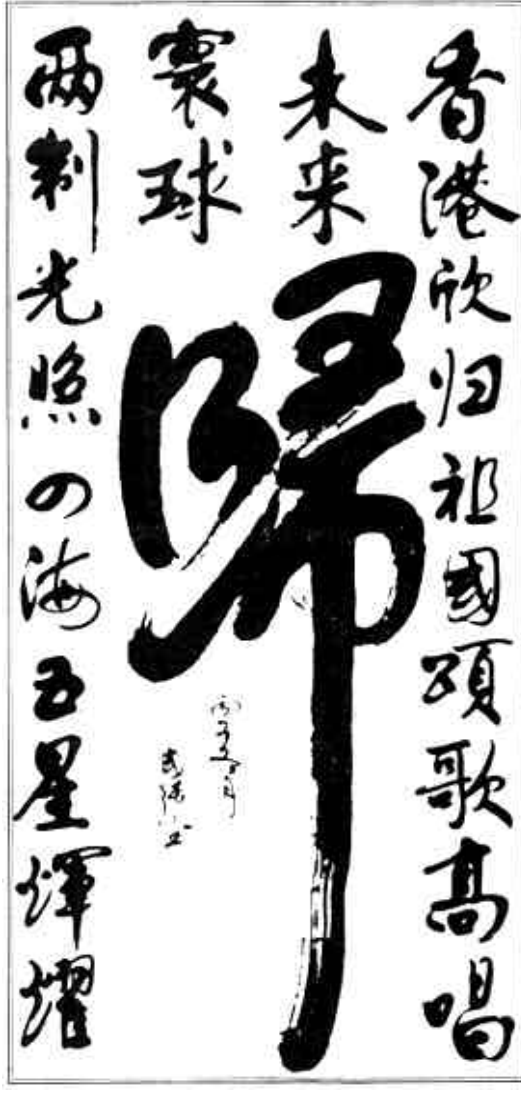 香港欣归祖國頌歌高唱
未来
寰球
两制光照四海五星輝耀
歸